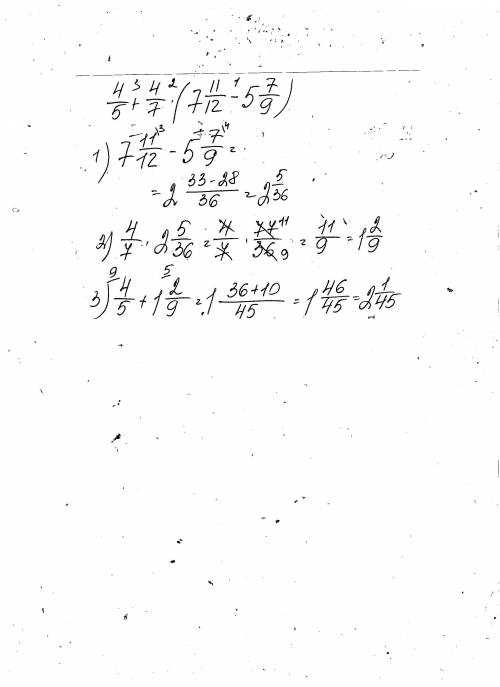 4/5 +³ 4/7 ·² (7 11/12 -¹ 5 7/9)
1) 7 11/12 ³ - 5 7/9 ⁴ =
= 2 (33-28)/36 = 2 5/36
2) 4/7 · 2 5/36 = 4/7 · 77/36 ¹¹ ₉ = 11/9 = 1 2/9
3) ⁹ 4/5 + 1 ⁵ 2/9 = 1 (36+10)/45 = 1 46/45 = 2 1/45